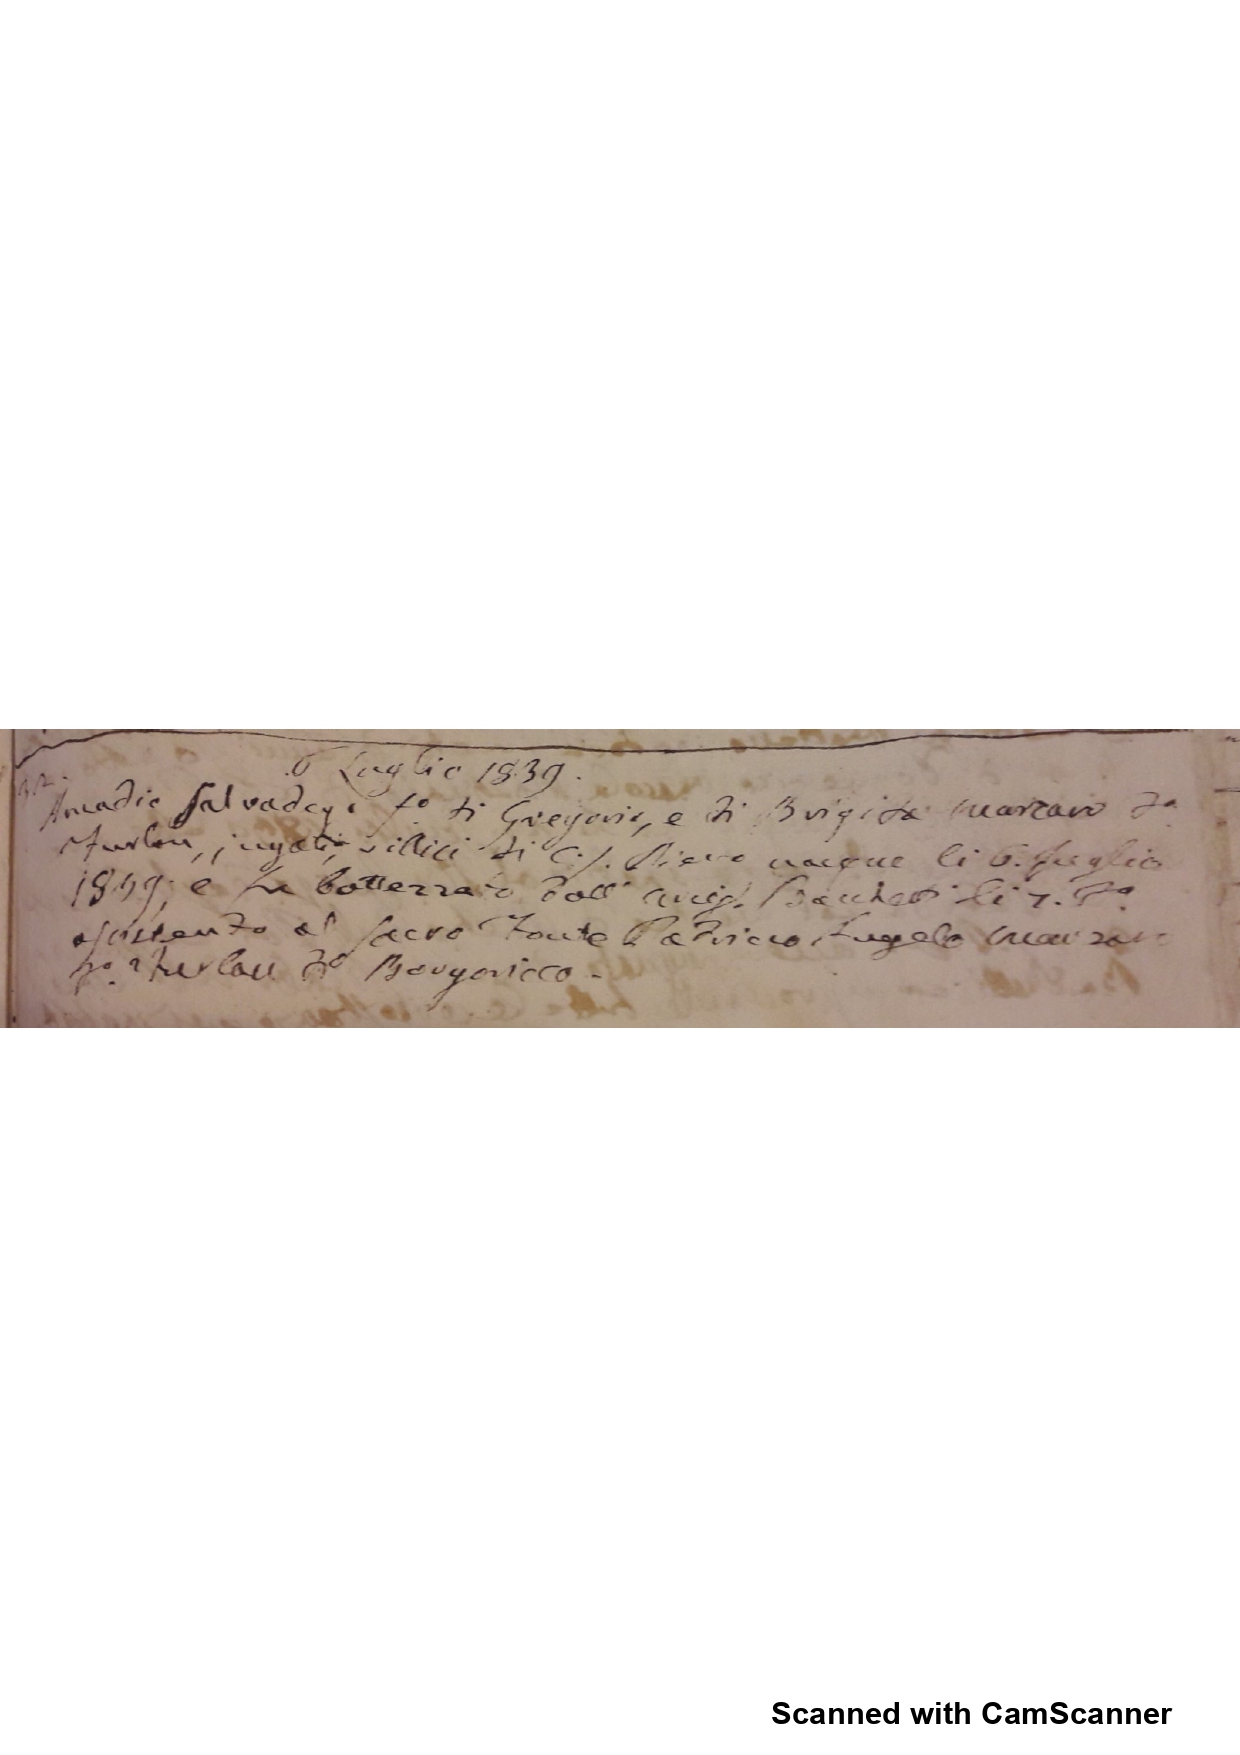 6 Luglio 1839.
Amadio Salvadegi fo di Gregorio, e di Brigida Marzaro do
Furlan, jugali, villici di C. S. Piero nacque li 6. Luglio
1839; e fu battezzato dall' Bacchetti li 7. do
assistendo al Sacro Fonte Padrino Angelo Marzaro
do Furlan do Borgoricco.
Scanned with CamScanner